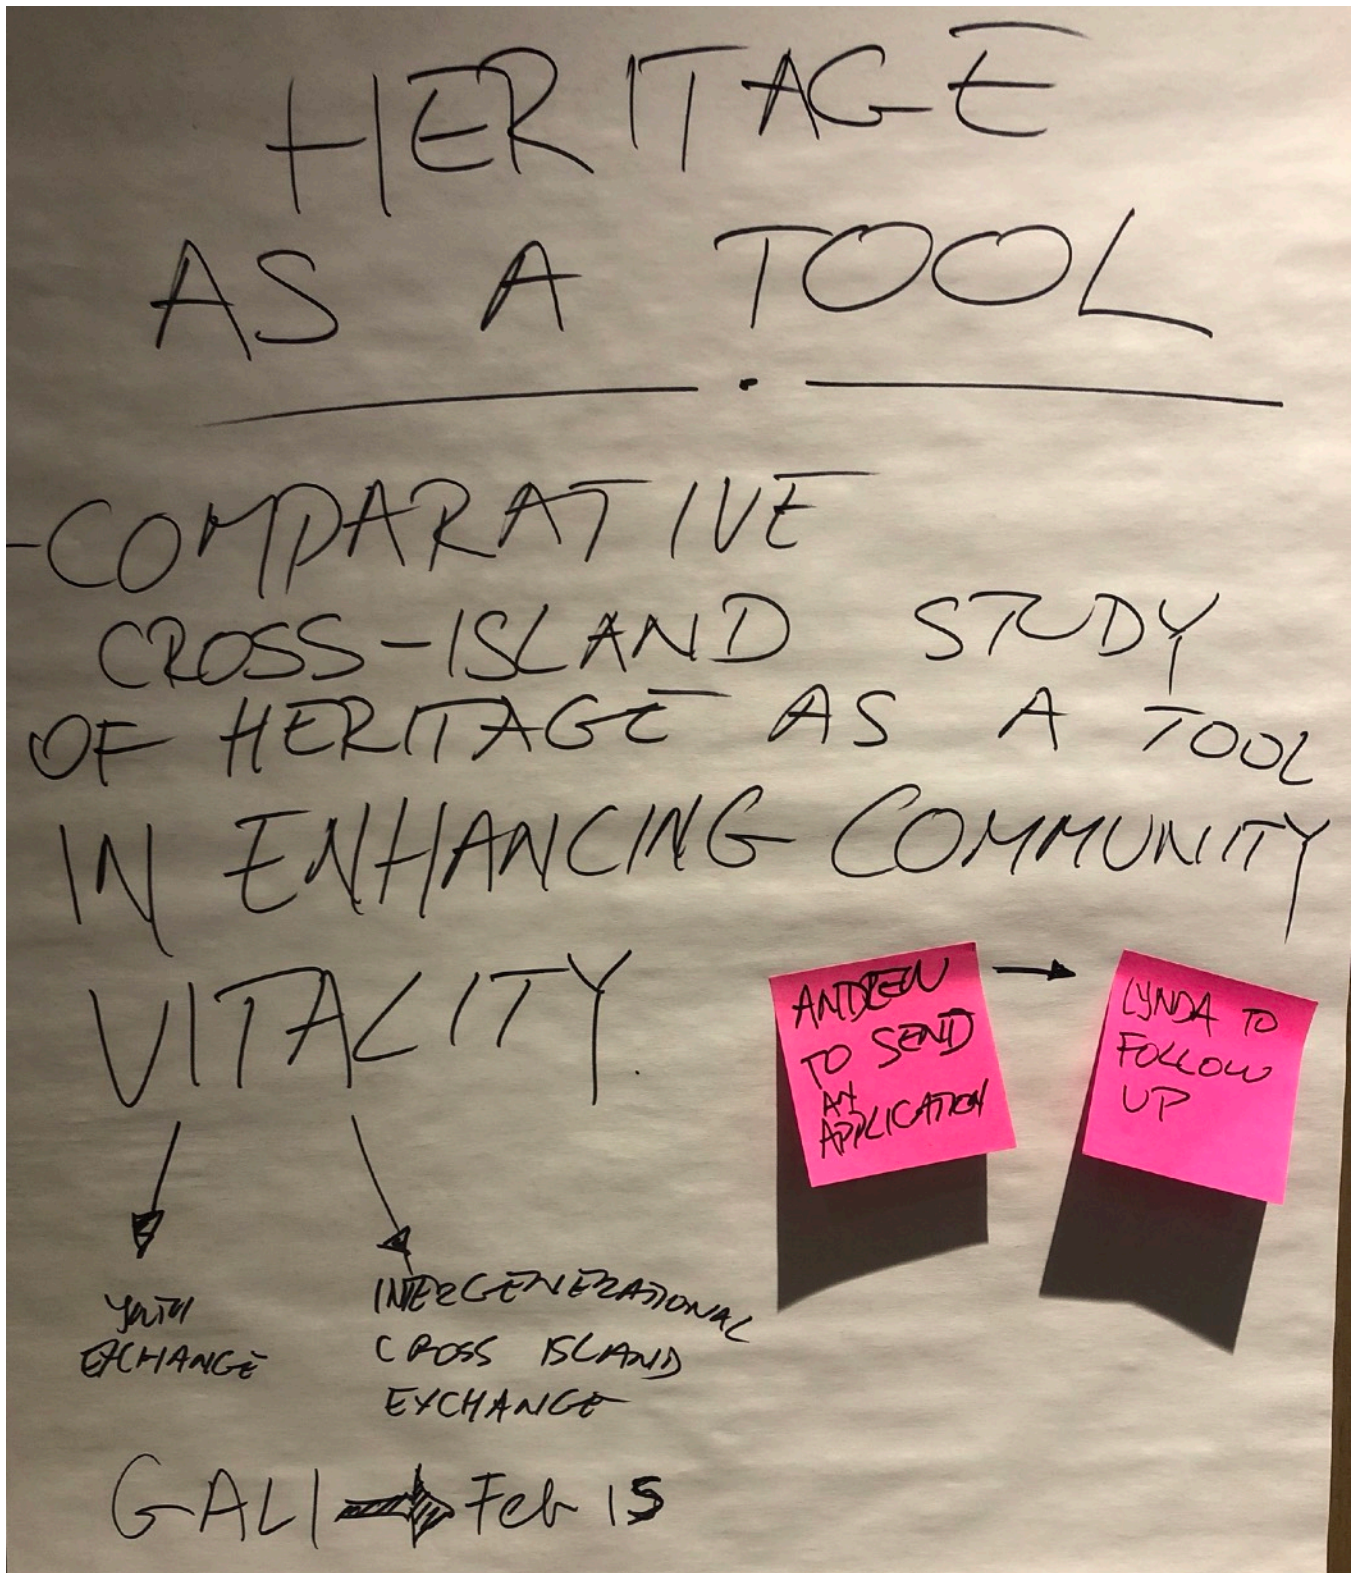 HERITAGE
AS A TOOL
-COMPARATIVE
CROSS-ISLAND STUDY
OF HERITAGE AS A TOOL
IN ENHANCING COMMUNITY
VITALITY.
ANDREW
TO SEND
AN
APPLICATION
LYNDA TO
FOLLOW
UP
YOUTH
EXCHANGE
INTERGENERATIONAL
CROSS ISLAND
EXCHANGE
GALI → Feb 15